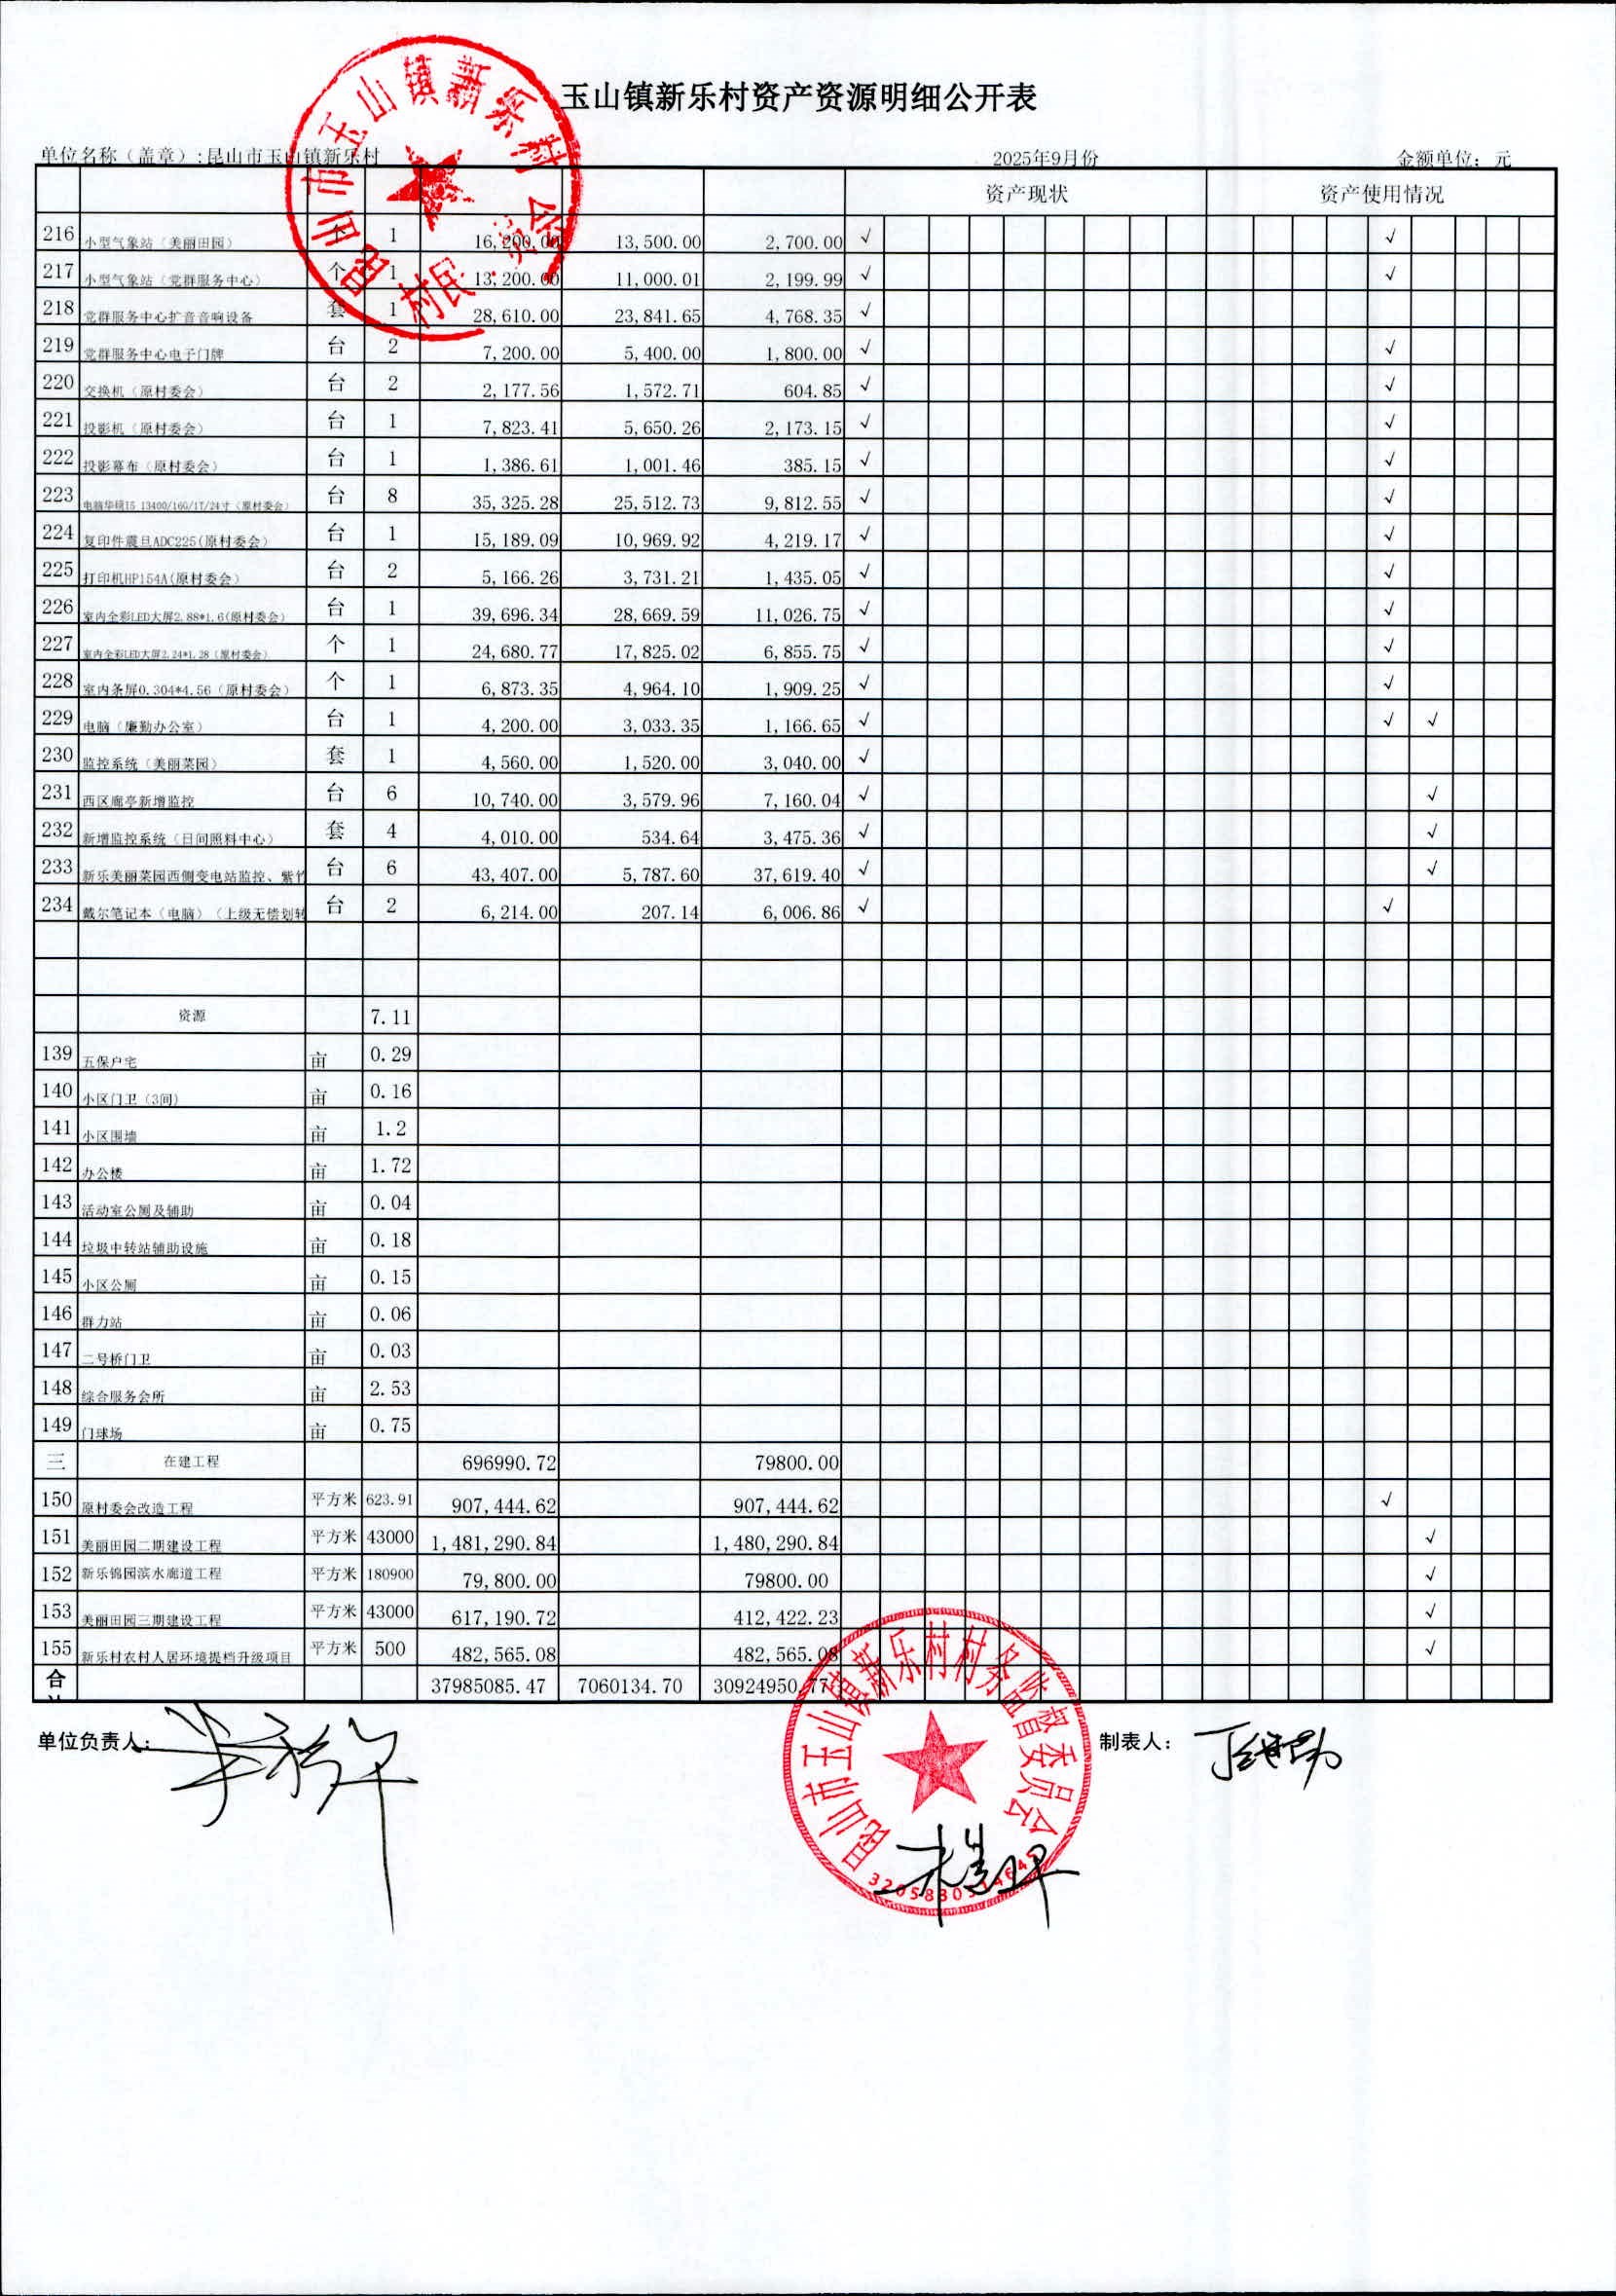 玉山镇新乐村资产资源明细公开表
单位名称（盖章）:昆山市玉山镇新乐村 2025年9月份 金额单位：元
资产现状 资产使用情况
216 小型气象站（美丽田园） 个 1 16,200.00 13,500.00 2,700.00 √ √
217 小型气象站（党群服务中心） 个 1 13,200.00 11,000.01 2,199.99 √ √
218 党群服务中心扩音音响设备 套 1 28,610.00 23,841.65 4,768.35 √
219 党群服务中心电子门牌 台 2 7,200.00 5,400.00 1,800.00 √ √
220 交换机（原村委会） 台 2 2,177.56 1,572.71 604.85 √ √
221 投影机（原村委会） 台 1 7,823.41 5,650.26 2,173.15 √ √
222 投影幕布（原村委会） 台 1 1,386.61 1,001.46 385.15 √ √
223 电脑华硕I5 13400/16G/1T/24寸（原村委会） 台 8 35,325.28 25,512.73 9,812.55 √ √
224 复印件震旦ADC225(原村委会） 台 1 15,189.09 10,969.92 4,219.17 √ √
225 打印机HP154A(原村委会） 台 2 5,166.26 3,731.21 1,435.05 √ √
226 室内全彩LED大屏2.88*1.6(原村委会） 台 1 39,696.34 28,669.59 11,026.75 √ √
227 室内全彩LED大屏2.24*1.28（原村委会） 个 1 24,680.77 17,825.02 6,855.75 √ √
228 室内条屏0.304*4.56（原村委会） 个 1 6,873.35 4,964.10 1,909.25 √ √
229 电脑（廉勤办公室） 台 1 4,200.00 3,033.35 1,166.65 √ √ √
230 监控系统（美丽菜园） 套 1 4,560.00 1,520.00 3,040.00 √
231 西区廊亭新增监控 台 6 10,740.00 3,579.96 7,160.04 √ √
232 新增监控系统（日间照料中心） 套 4 4,010.00 534.64 3,475.36 √ √
233 新乐美丽菜园西侧变电站监控、紫竹 台 6 43,407.00 5,787.60 37,619.40 √ √
234 戴尔笔记本（电脑）（上级无偿划转 台 2 6,214.00 207.14 6,006.86 √ √
资源 7.11
139 五保户宅 亩 0.29
140 小区门卫（3间） 亩 0.16
141 小区围墙 亩 1.2
142 办公楼 亩 1.72
143 活动室公厕及辅助 亩 0.04
144 垃圾中转站辅助设施 亩 0.18
145 小区公厕 亩 0.15
146 群力站 亩 0.06
147 二号桥门卫 亩 0.03
148 综合服务会所 亩 2.53
149 门球场 亩 0.75
三 在建工程 696990.72 79800.00
150 原村委会改造工程 平方米 623.91 907,444.62 907,444.62 √
151 美丽田园二期建设工程 平方米 43000 1,481,290.84 1,480,290.84 √
152 新乐锦园滨水廊道工程 平方米 180900 79,800.00 79800.00 √
153 美丽田园三期建设工程 平方米 43000 617,190.72 412,422.23 √
155 新乐村农村人居环境提档升级项目 平方米 500 482,565.08 482,565.08 √
合 37985085.47 7060134.70 30924950.77
单位负责人: 制表人：
昆山市玉山镇新乐村村务监督委员会